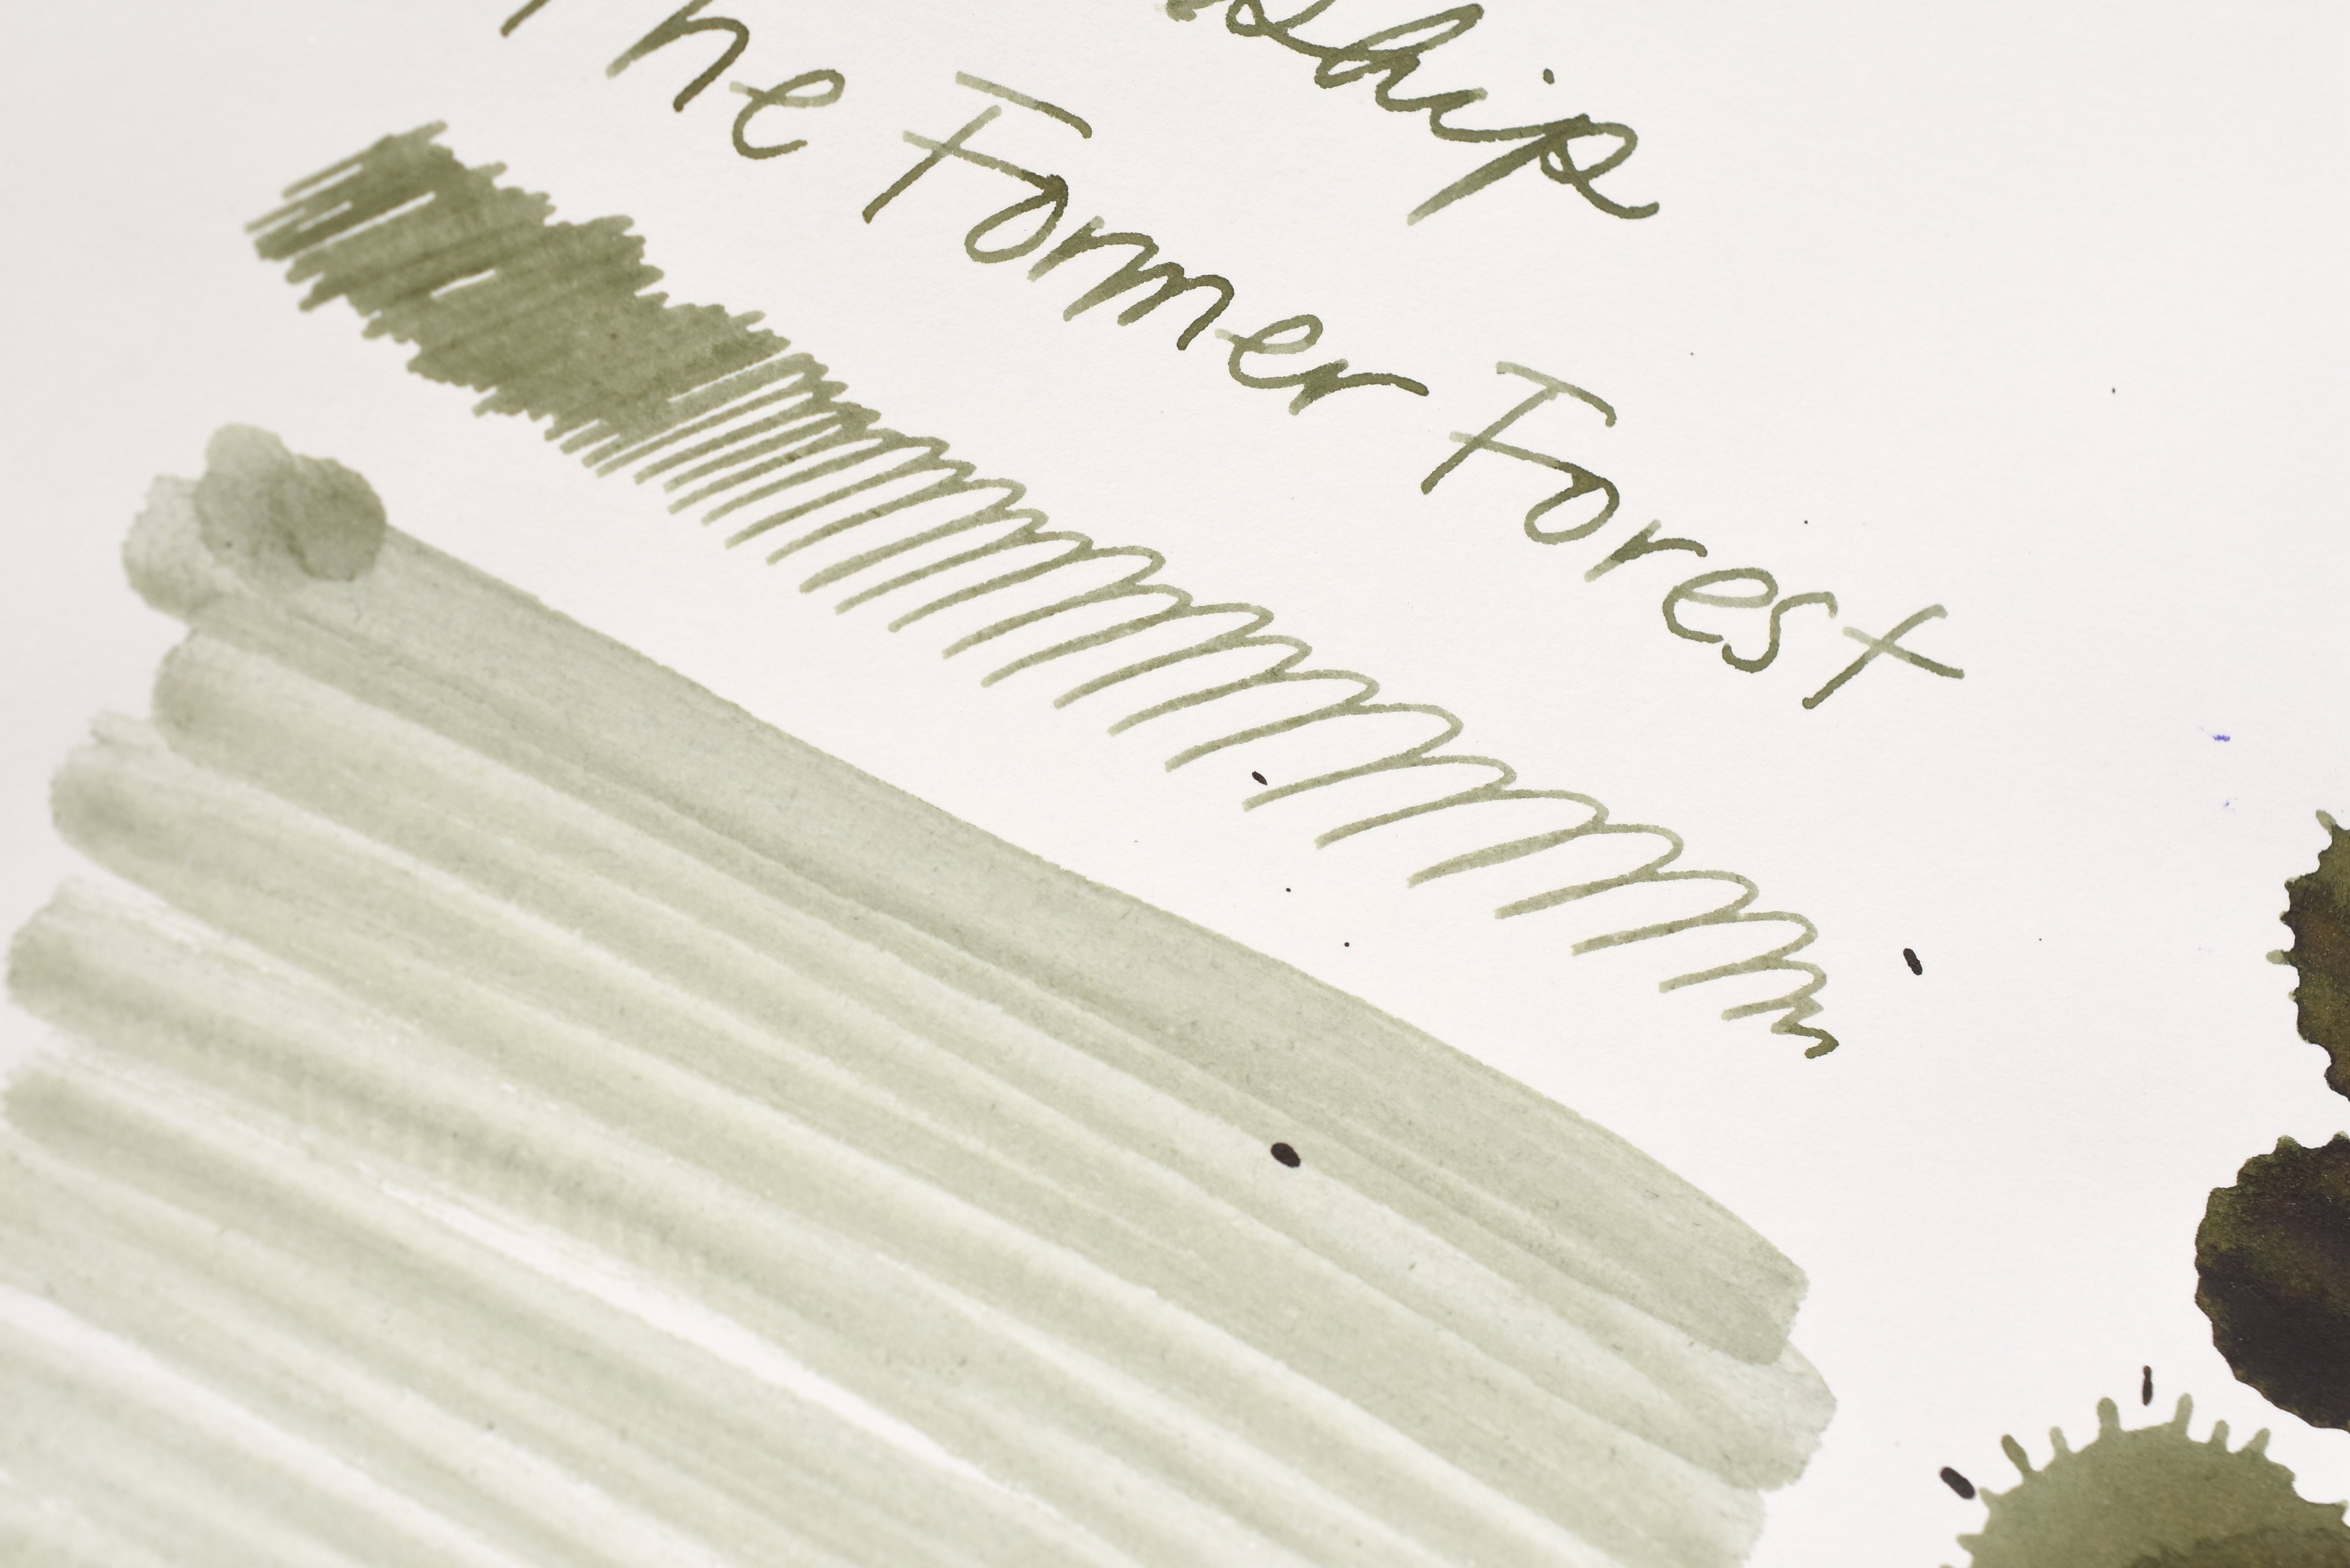 ship
The Former Forest